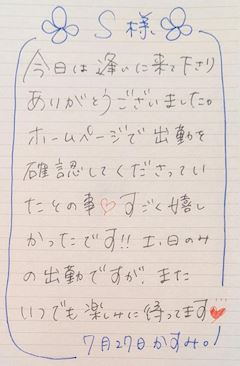 S様
今日は逢いに来て下さり
ありがとうございました。
ホームページで出勤を
確認してくださってい
たとの事♡すごく嬉し
かったです!! 土、日のみ
の出勤ですが、また
いつでも楽しみに待ってます♥
7月27日かすみ。